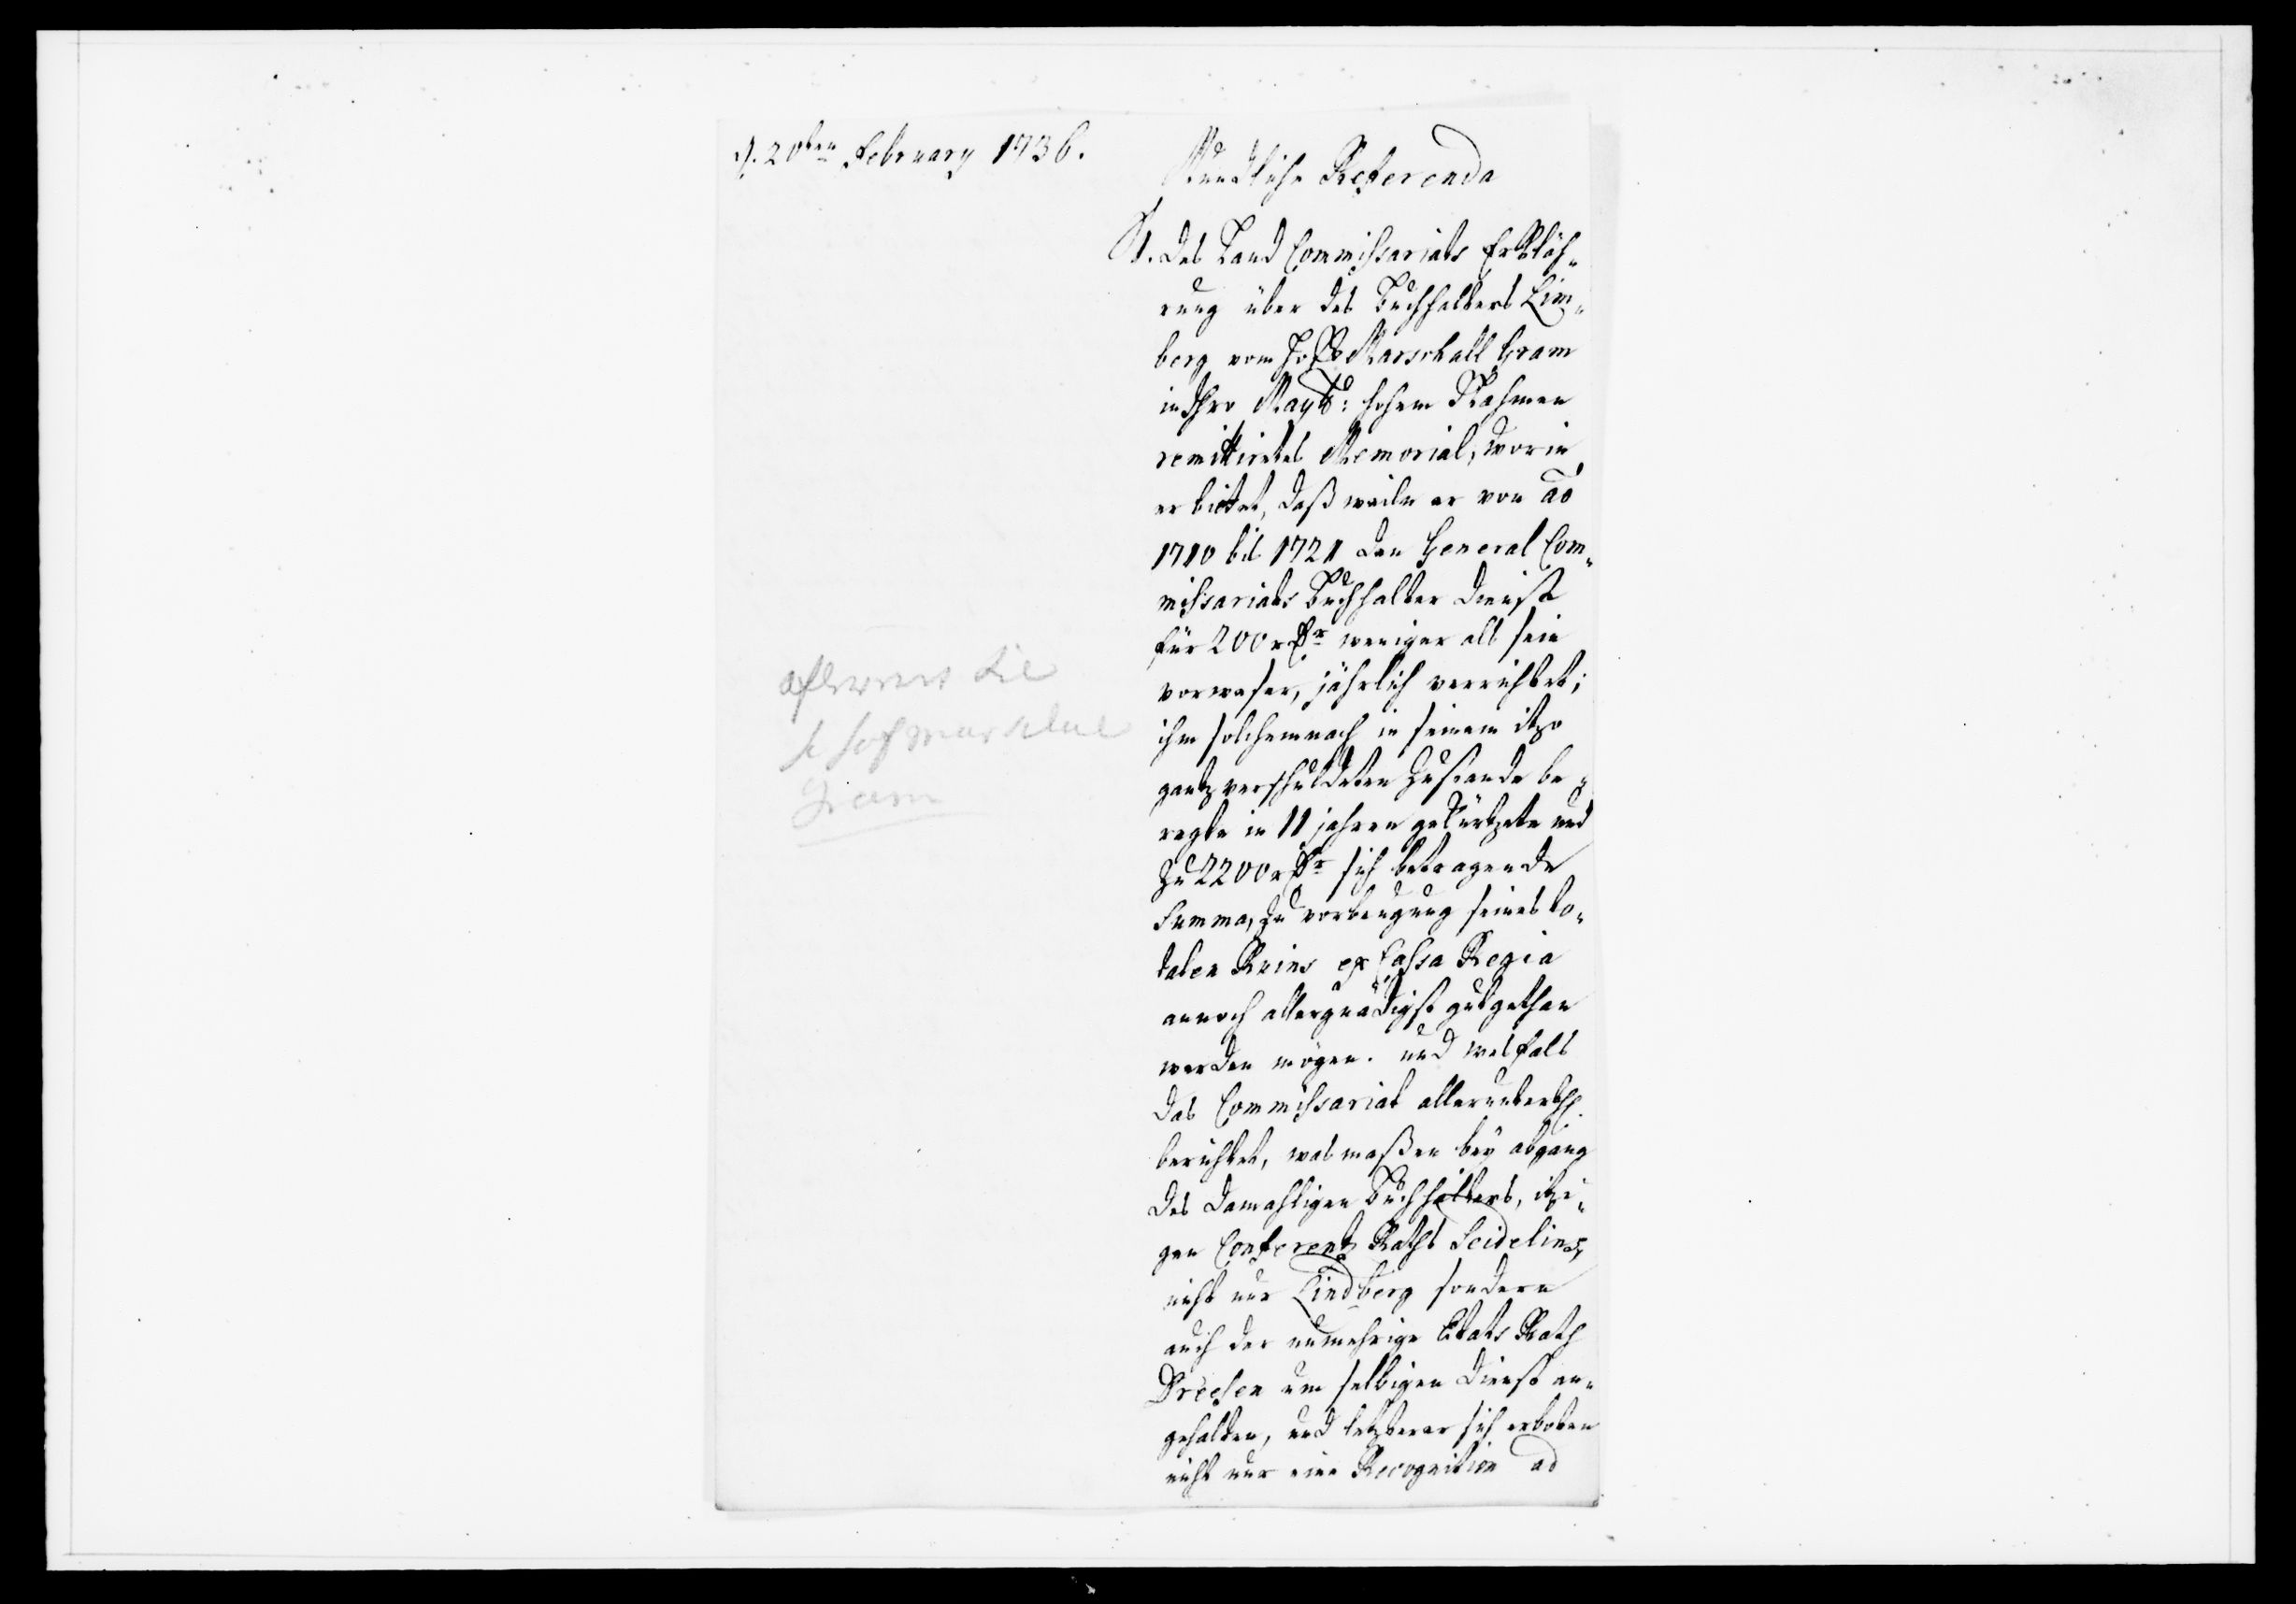 d. 20ten February 1736.
Mündliche Referenda
1. Des Land Commissariats Erkläh¬
rung über des Buchhalters Lim¬
berg vom Hoff Marschall Gram
in Ihro Maytt: hohem Nahmen
remittirtes Memorial, worin
er bittet, daß weiln er von ao
1710 bis 1721 den General Com¬
missariats Buchhalter Dienst
für 200 rdr weniger als sein
vorweser, jährlich verrichtet;
ihm solchemnach in seinem itzo
gantz verschuldeten Zustande be¬
regte in 11 jahren gekürtzete und
zu 2200 rdr sich betragende
Summa, zu vorbeugung seines to¬
talen Ruins ex Cassa Regia
annoch allergnädigst gutgethan
werden mögen. und wesfals
das Commissariat allerunterth.
berichtet, was maßen bey abgang
des damahligen Buchhalters, itzi¬
gen Conferentz Raths Seidelins,
nicht nur Lindberg sondern
auch der nunmehrige Etats Rath
Dreesen um selbigen Dienst an¬
gehalten, und letzterer sich erboten
nicht nur eine Recognition ad
afleveret til
h hofmarskal
Gram